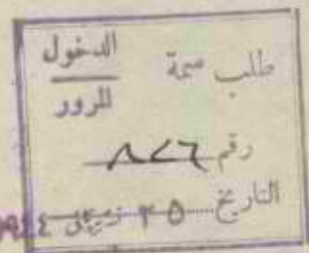 طلب سمة الدخول
المرور
رقم ٨٢٦
التاريخ ٢٥